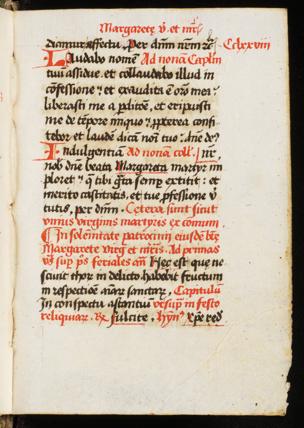 Margarete v̄. et mr̄is
dicimur effectu. Per dn̄m nr̄m ꝛc̄. Cclxxviii
Laudabo nomē Ad nonā Caplm̄
tuū assidue. et collaudabo illud in
cōfessione ⁊ et exaudita ē orō mea ⁊
liberasti me a pditōe. et eripuisti
me de tēpore iniquo ⁊ ppterea confi
tebor et laudē dicā noī tuo. dn̄e ds̄
Indulgentiā Ad nonā coll.
nob̄ dn̄e beata Margareta martyr im
ploret ⁊ q̄ tibi gr̄ta semp extitit : et
merito castitatis. et tue pfessione v̄
tutis. per dn̄m. Cetera sunt sicut
unius virginis martyris ex comuni
In solēnitate patrocinij eiusdē btē
Margarete virḡ et mr̄is. Ad primas
vs̄ sup ps̄ feriales an̄ Hec est que ne
sciuit thor in delicto habebit fructum
in respectiōe aīarū sanctarū. Capitulū
In conspectu astantiū vtsup in festo
reliquiar. R̄. fulcite. hyn̄. Xp̄e red